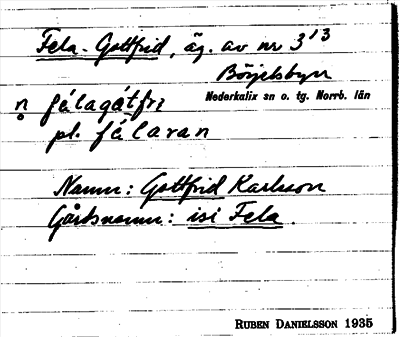 Fela-Gottfrid, äg. av nr 3¹³
Börjelsbyn
Nederkalix sn o. tg. Norrb. län
n fę́lagåtfrı
pl. fę́laran
Namn: Gottfrid Karlsson
Gårdsnamn: isi Fela.
RUBEN DANIELSSON 1935